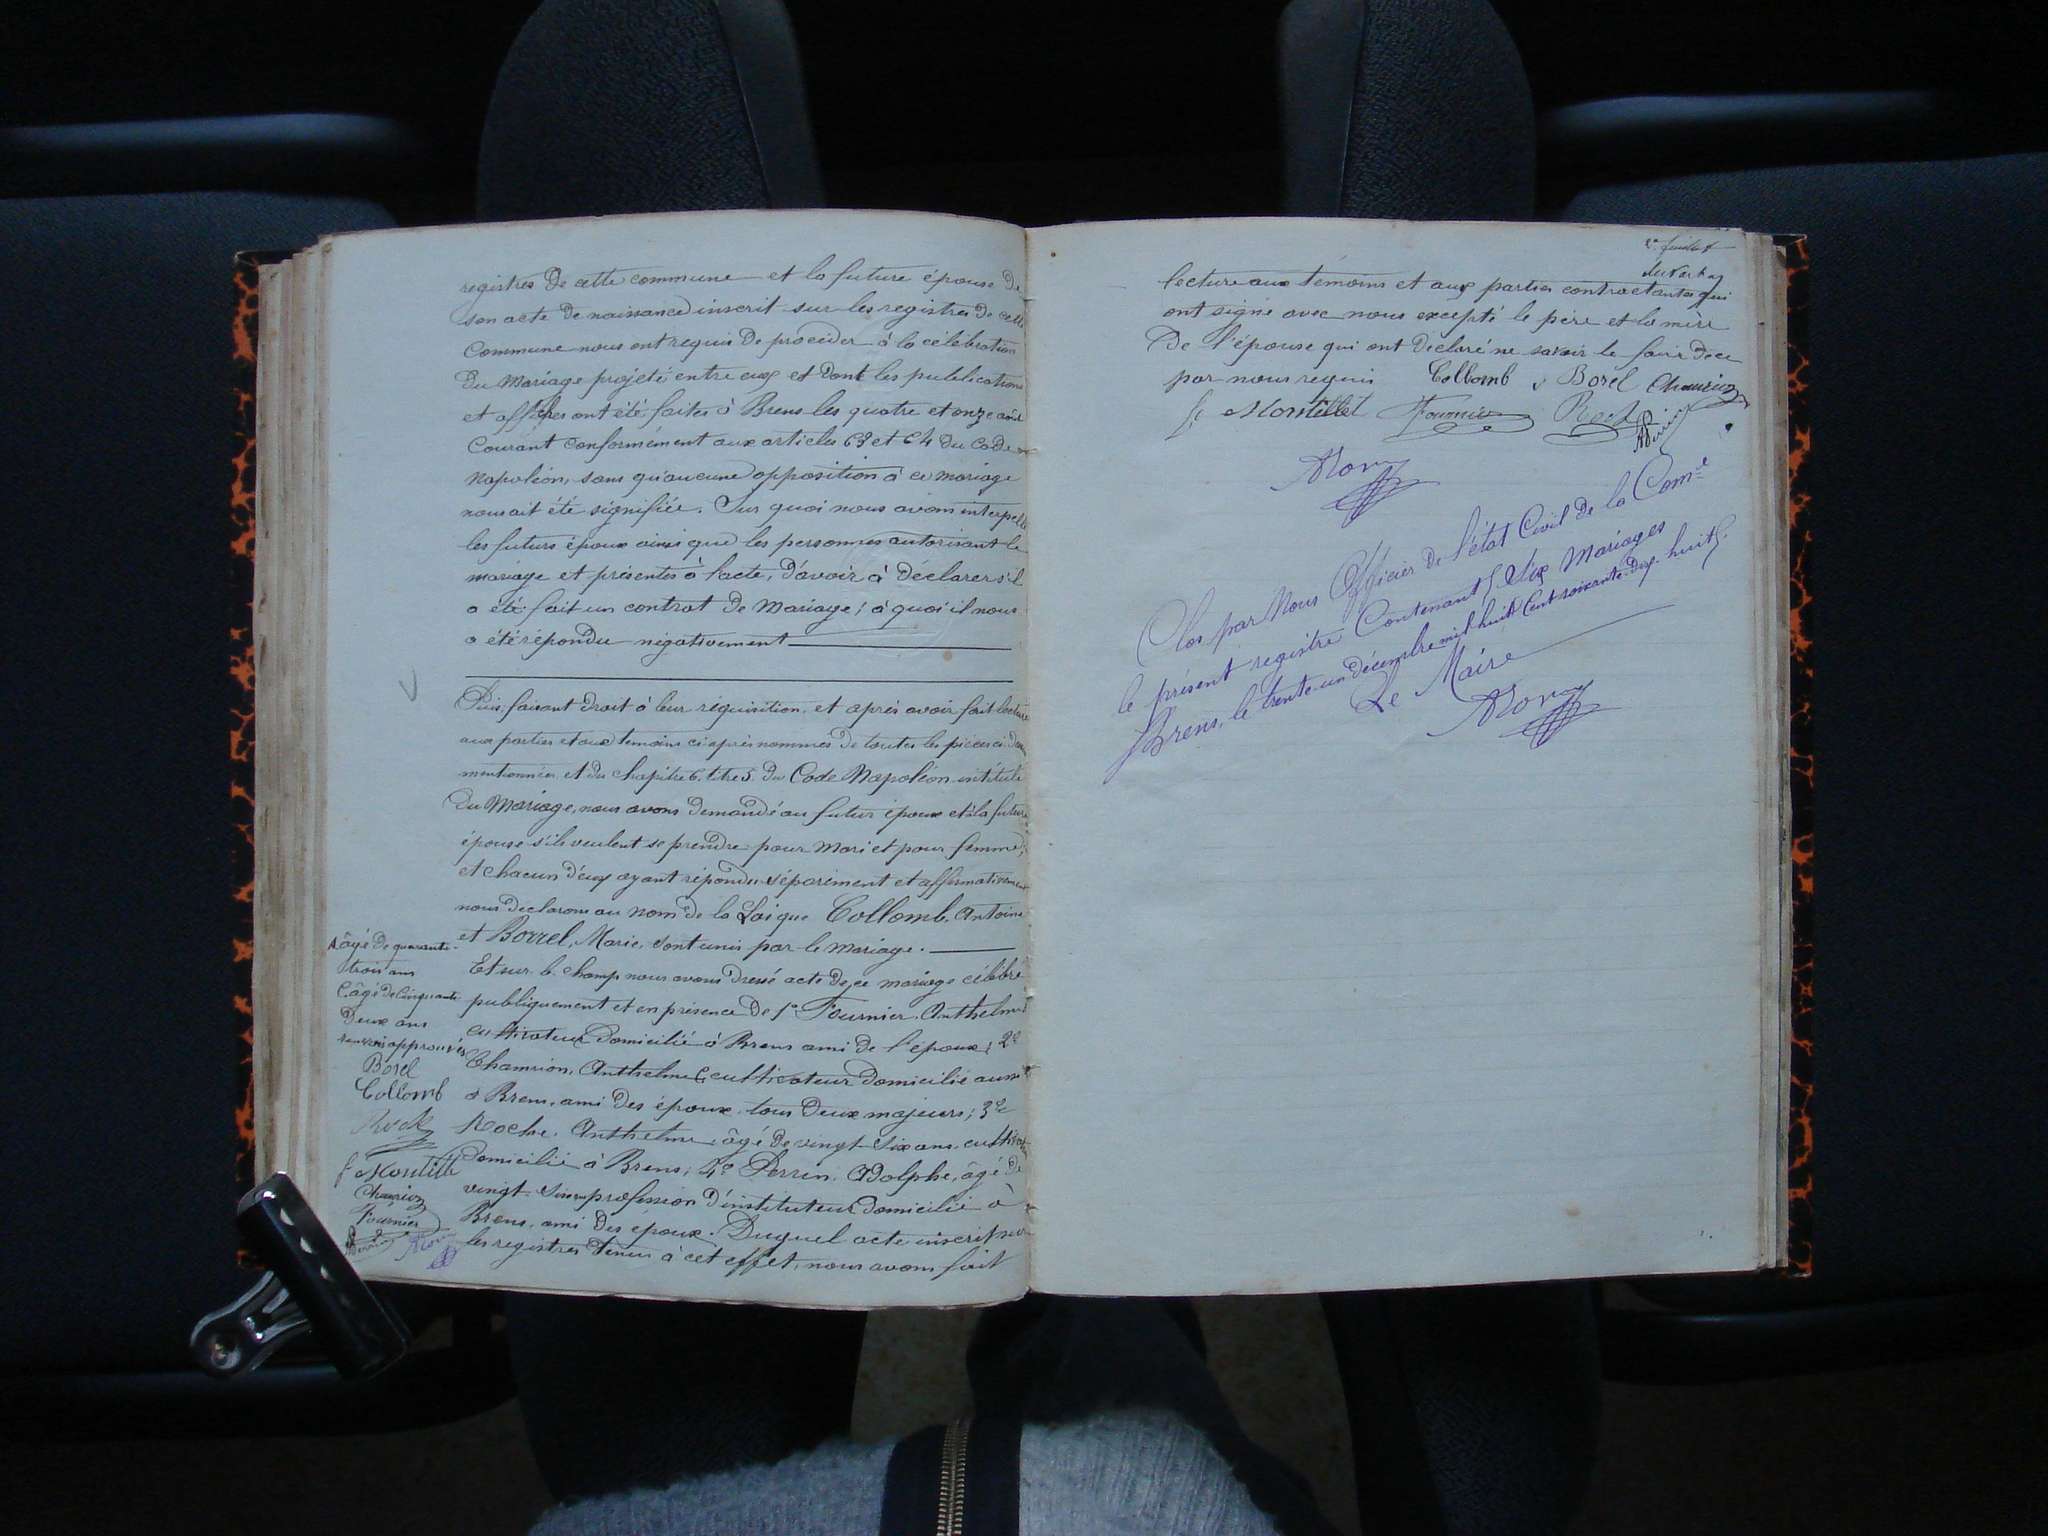 registres de cette commune et la future épouse de
son acte de naissance inscrit sur les registres de cette
Commune nous ont requis de procéder à la célébration
du Mariage projeté entre eux et dont les publications
et affiches ont été faites à Brens les quatre et onze août
Courant conformément aux articles 63 et 64 du Code
Napoléon, sans qu'aucune opposition à ce mariage
nous ait été signifiée. Sur quoi nous avons interpellé
les futurs époux ainsi que les personnes autorisant le
mariage et présentes à l'acte, d'avoir à déclarer s'il
a été fait un contrat de Mariage; à quoi il nous
a été répondu négativement
Puis, faisant droit à leur réquisition, et après avoir fait lecture
aux parties et aux témoins ci-après nommés de toutes les pièces ci-dessus
mentionnées et du chapitre 6, titre 5, du Code Napoléon intitulé
Du Mariage, nous avons demandé au futur époux et à la future
épouse s'ils veulent se prendre pour Mari et pour femme;
et chacun d'eux ayant répondu séparément et affirmativement
nous déclarons au nom de la Loi que Collomb, Antoine
et Borrel, Marie, sont unis par le mariage.
Et sur le champ nous avons dressé acte de ce mariage célébré
publiquement et en présence de 1° Fournier, Anthelme
cultivateur domicilié à Brens ami de l'époux; 2°
Chamrion, Anthelme, cultivateur domicilié aussi
à Brens, ami des époux, tous deux majeurs; 3°
Roche, Anthelme âgé de vingt-six ans, cultivateur
domicilié à Brens; 4° Perrin, Adolphe, âgé de
vingt-six ans profession d'instituteur domicilié à
Brens, ami des époux. Duquel acte inscrit sur
les registres tenus à cet effet, nous avons fait
âgé de quarante-
trois ans
âgé de Cinquante
deux ans
renvois approuvés
Borel
Collomb
Roche
Chamrion
Fournier
Perrin
lecture aux témoins et aux parties contractantes qui
ont signé avec nous excepté le père et la mère
De l'épouse qui ont déclaré ne savoir le faire de ce
par nous requis Collomb Borel Chamrion
Montillet Fournier Roche
Perrin
Clos par Nous Officier de l'état Civil de la Com.ne
le présent registre Contenant Six Mariages
Brens, le trente-un décembre mil huit Cent soixante-dix-huit.
Le Maire